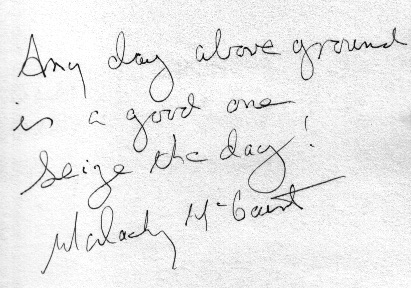 Any day above ground
is a good one
Seize the day!
Malachy McCourt